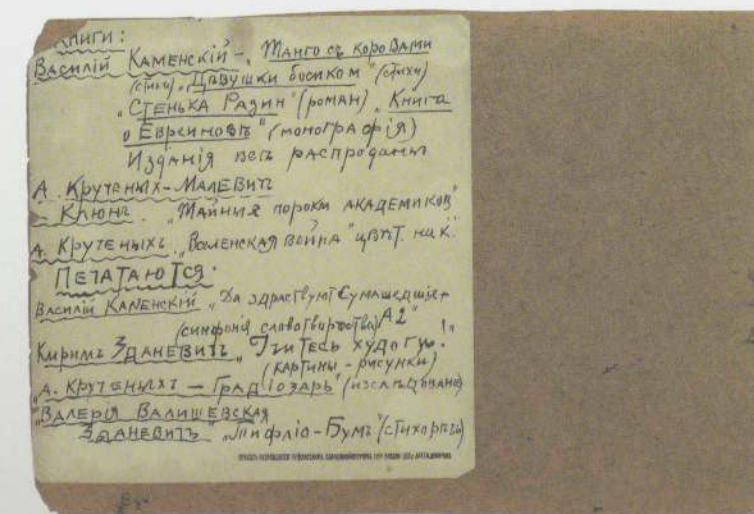 Книги:
Василій Каменскій – „Танго съ коровами
(стихи) „Дѣвушки босиком" (стихи)
„Стенька Разин" (роман) „Книга
о Евреиновѣ" (монографія)
Изданія всѣ распроданы
А. Крученых – Малевичъ
– Клюнъ. „Тайныя пороки академиков"
А. Крученыхъ „Вселенская война" цвѣт. нак.
Печатаются:
Василій Каменскій „Да здраствуют Сумашедшіе
(симфонія словотворчества) А2"
Кирилъ Зданевичъ „Учитесь худоги!"
(картины – рисунки)
„А. Крученыхъ – Градіозарь" (изслѣдованіе)
„Валерія Валишевская
Зданевичъ „Тифліо-Бумъ"